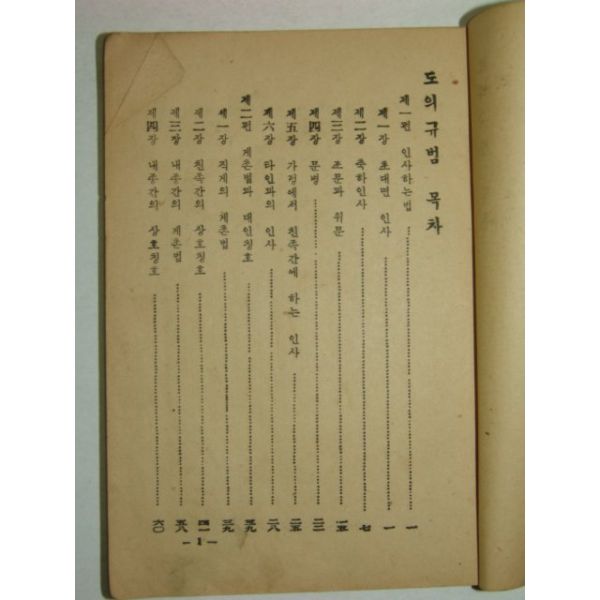 도의규범 목차
제一편 인사하는법 一
제一장 초대면 인사 一
제二장 축하인사 七
제三장 조문과 위문 一五
제四장 문병 二三
제五장 가정에서 친족간에 하는 인사 二五
제六장 타인과의 인사 二八
제二편 계촌법과 대인칭호 三九
제一장 직계의 계촌법 三九
제二장 친족간의 상호칭호 四一
제三장 내종간의 계촌법 五八
제四장 내종간의 상호칭호 六〇
—1—